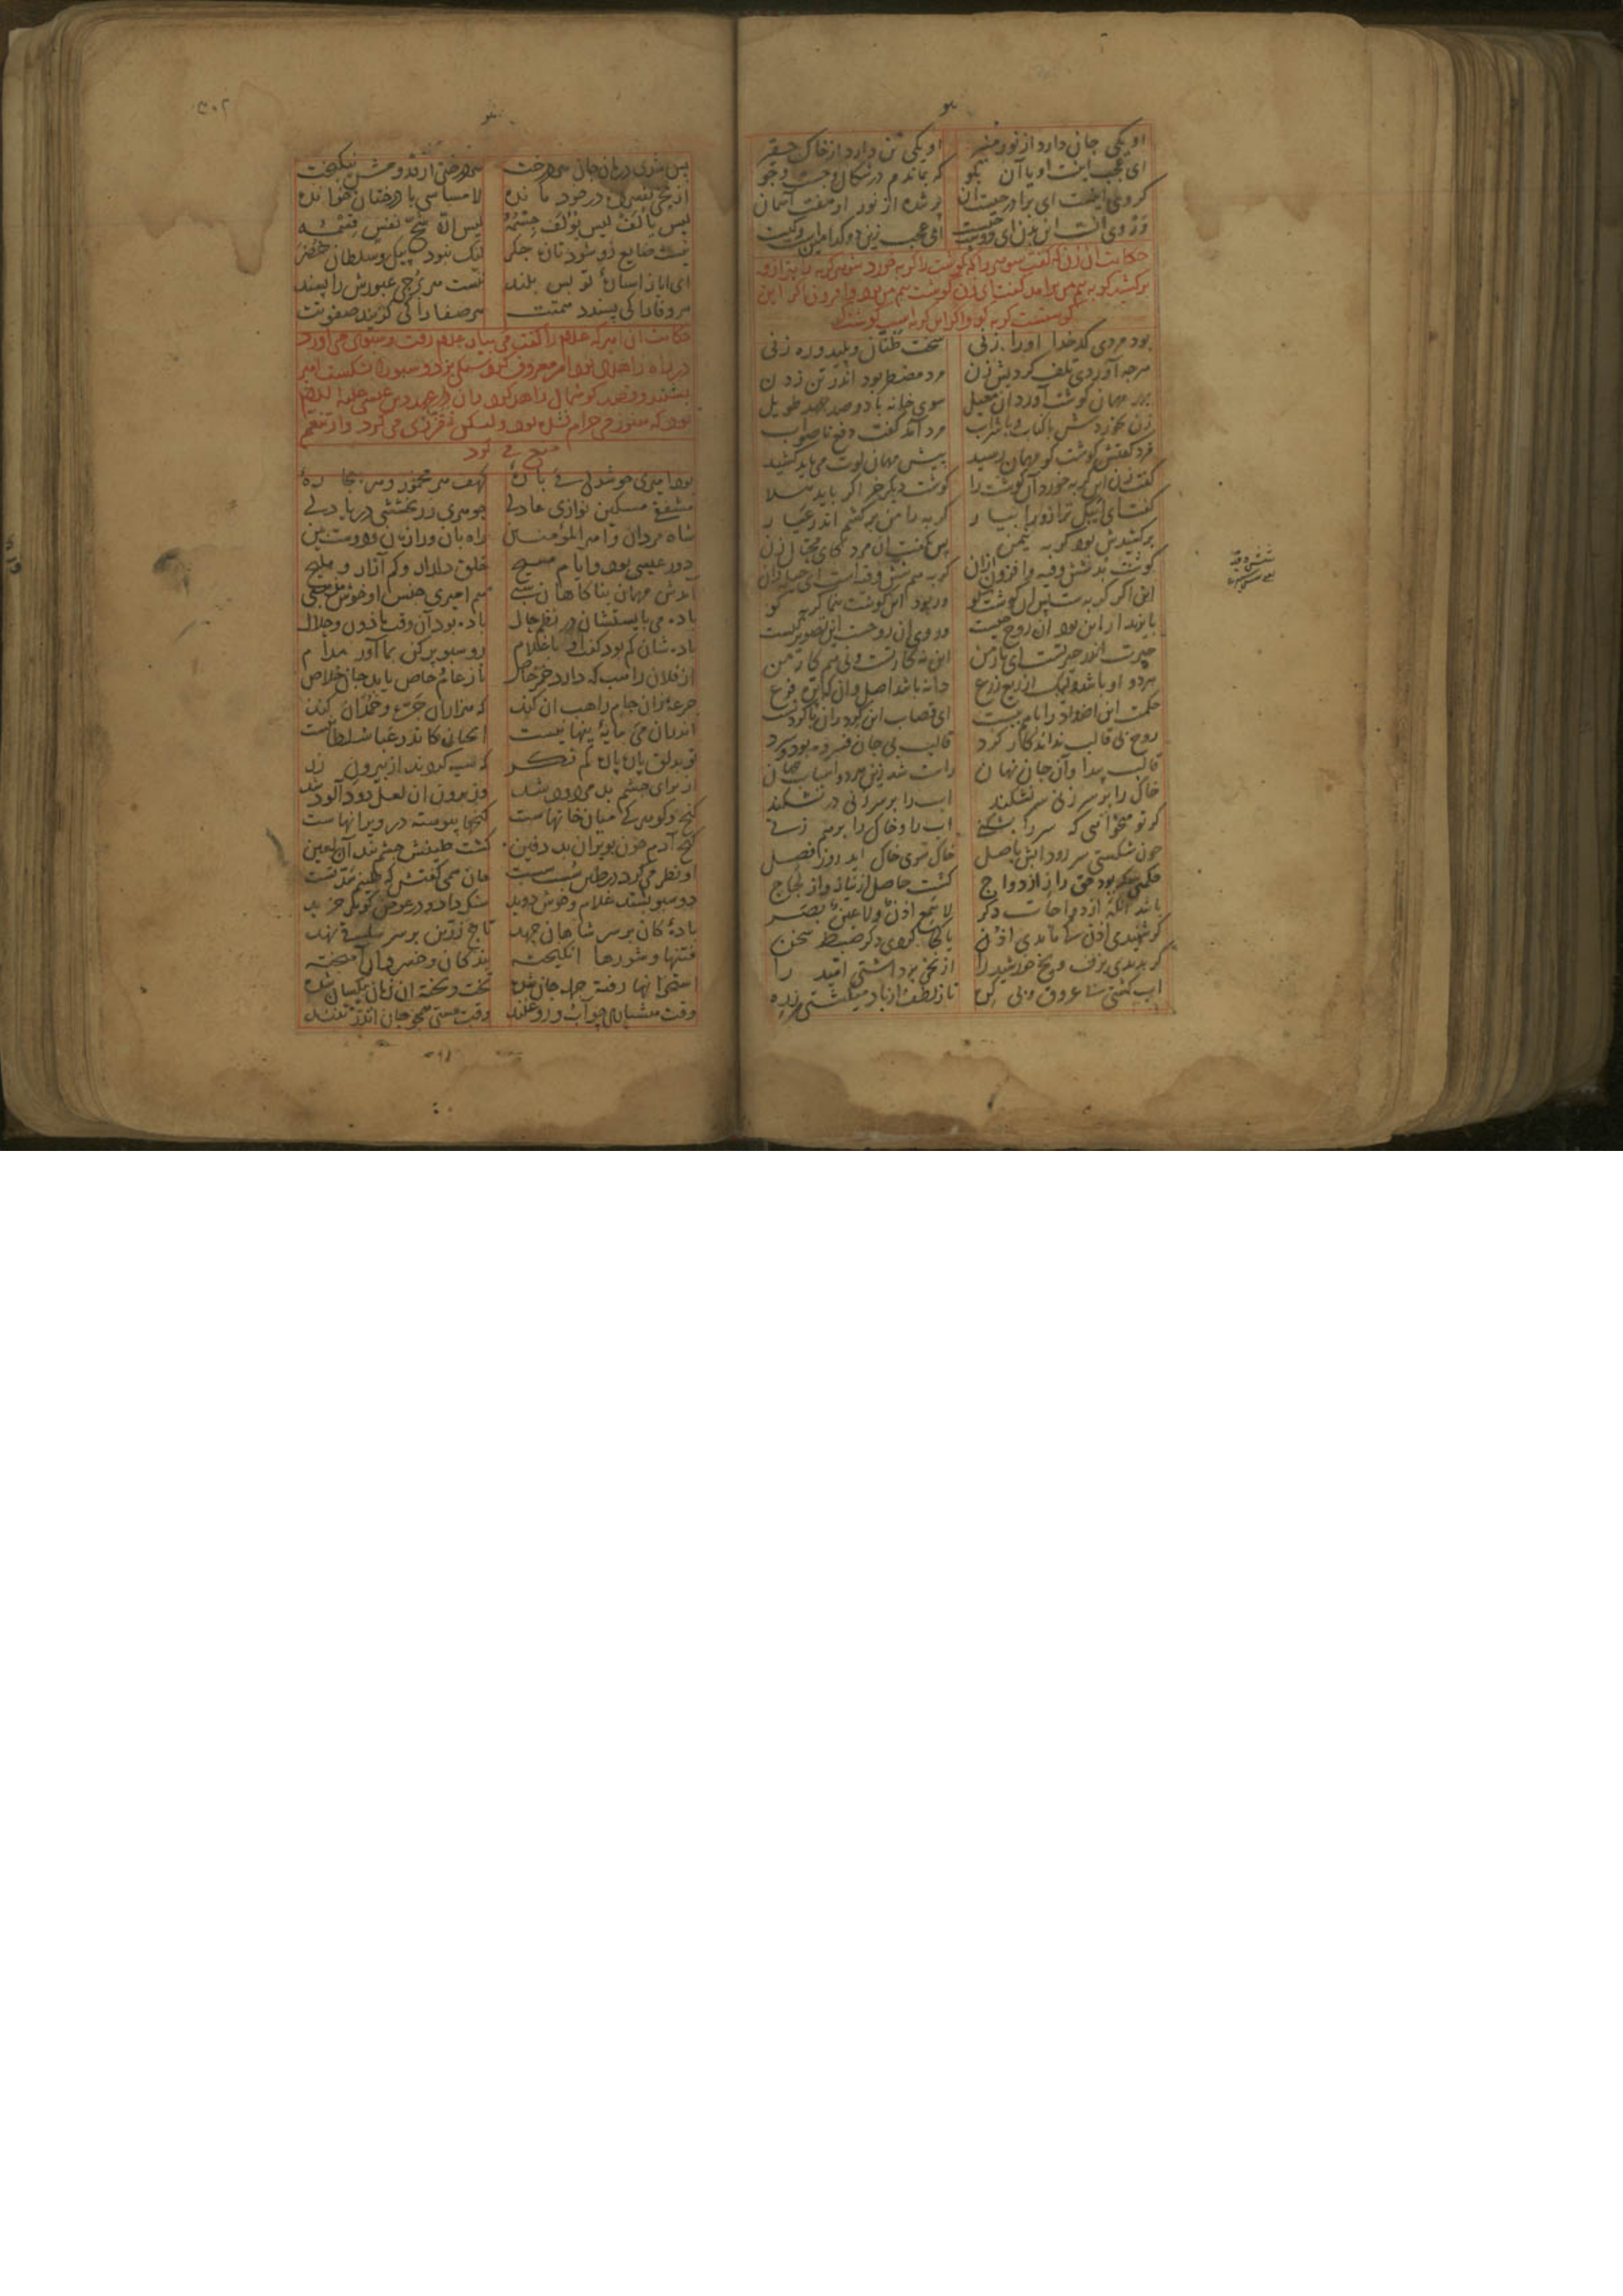 او یکی جان دارد از نور منیر او یکی تن دارد از خاک حقیر
ای عجب اینست او یا آن بگو که بماندم در شکال و جست و جو
کر وی اینست ای برادر چیست آن پر شده از نور او هفت آسمان
ور وی آنست این بدن ای دوست چیست ای عجب زین دو کدامین است و کیست
حکایت آن زن که گفت شوهر را که گوشت را گربه خورد شوهر گربه را بترازو
برکشید گربه نیم من برآمد گفت ای زن گوشت نیم من بود و افزون اگر این
گوشتست گربه کو و اگر این گربه است گوشت کو
بود مردی کدخدا او را زنی سخت طناز و پلید و ره زنی
هرچه آوردی تلف کردیش زن مرد مضطر بود اندر تن زدن
بهر مهمان گوشت آورد آن معیل سوی خانه با دو صد جهد طویل
زن بخوردش با کباب و با شراب مرد آمد گفت دفع ناصواب
مرد گفتش گوشت کو مهمان رسید پیش مهمان لوت می باید کشید
گفت زن این گربه خورد آن گوشت را گوشت دیگر خر اگر باید هلا
گفت ای ایبک ترازو را بیار گربه را من برکشم اندر عیار
برکشیدش بود گربه نیم من پس بگفت آن مرد کای محتال زن
گوشت بد شش وقیه و افزون ازان گربه هم شش وقیه است ای حیله دان
این اگر گربه ست پس آن گوشت کو ور بود این گوشت بنما گربه کو
بایزید ار این بود آن روح چیست ور وی آن روحست این تصویر کیست
حیرت اندر حیرتست ای یار من این نه کار تست و نی هم کار من
هر دو او باشد ولیک از ریع زرع دانه باشد اصل و آن که پره فرع
حکمت این اضداد را با هم ببست ای قصاب این گرد ران با گردنست
روح بی قالب نداند کار کرد قالب بی جان فسرده بود و سرد
قالبت پیدا و آن جان نهان راست شد زین هر دو اسباب جهان
خاک را بر سر زنی سر نشکند آب را بر سر زنی در نشکند
گر تو میخواهی که سر را بشکنی آب را و خاک را برهم زنی
چون شکستی سر رود آبش باصل خاک سوی خاک آید روز فصل
حکمتی که بود حق را ز ازدواج گشت حاصل از نیاز و از لجاج
باشد آنگه ازدواجات دگر لا سمع اذن و لا عین بصر
گر شنیدی اذن کی ماندی اذن یا کجا کردی دگر ضبط سخن
گر بدیدی برف و یخ خورشید را از یخی برداشتی امید را
آب گشتی بی عروق و بی گره تا ز لطف از باد میگشتی زره
شش وقیه
پس شدی درمان جان هر درخت هر درختی از قدومش نیکبخت
آن یخی بفسرده در خود مانده لا مساسی با درختان خوانده
لیس یألف لیس یؤلف جسمه لیس الا شح نفس قسمه
نیست ضایع زو شود تازه جگر لیک نبود پیک و سلطان خضر
ای ایاز استاره تو بس بلند نیست هر برجی عبورش را پسند
هر وفا را کی پسندد همتت هر صفا را کی گزیند صفوتت
حکایت آن امیر که غلام را گفت می بیار غلام رفت و سبوی می آورد
در راه زاهدی بود امر معروف کرد و سنگی بزد و سبو را شکست امیر
بشنید و قصد گوشمال زاهد کرد و آن در عهد دین عیسی علیه السلام
بود که هنوز می حرام نشده بود ولیکن زاهد تقززی می کرد و از تنعم
منع می کرد
بود امیری خوش دلی می باره کهف هر مخمور و هر بیچاره
مشفقی مسکین نوازی عادلی جوهری زر بخششی دریا دلی
شاه مردان و امیر المؤمنین راه بان و رازدان و دوست بین
دور عیسی بود و ایام مسیح خلق دلدار و کم آزار و ملیح
آمدش مهمان بناگاهان شبی هم امیری جنس او خوش مذهبی
باده می بایستشان در نظم حال باده بود آن وقت ماذون و حلال
باده شان کم بود گفتا با غلام رو سبو پر کن بما آور مدام
از فلان راهب که دارد خمر خاص تا ز عام و خاص یابد جان خلاص
جرعه زان جام راهب آن کند که هزاران جره و خمدان کند
اندران می مایه پنهانیست آنچنان کاندر عبا سلطانیست
تو بدلق پاره پاره کم نگر که سیه کردند از بیرون زر
از برای چشم بد مردود شد وز برون آن لعل دود آلود شد
گنج و گوهر کی میان خانهاست گنجها پیوسته در ویرانهاست
گنج آدم چون بویران بد دفین گشت طینش چشم بند آن لعین
او نظر می کرد در طین سست سست جان همی گفتش که طینم سد تست
دو سبو بستد غلام و خوش دوید
باده کان بر سر شاهان جهد تاج زرین بر سر ساقی نهد
فتنها و شورها انگیخته بندگان و خسروان آمیخته
استخوانها رفته جمله جان شده تخت و تخته آن زمان یکسان شده
وقت هشیاری چو آب و روغنند وقت مستی همچو جان اندر تنند